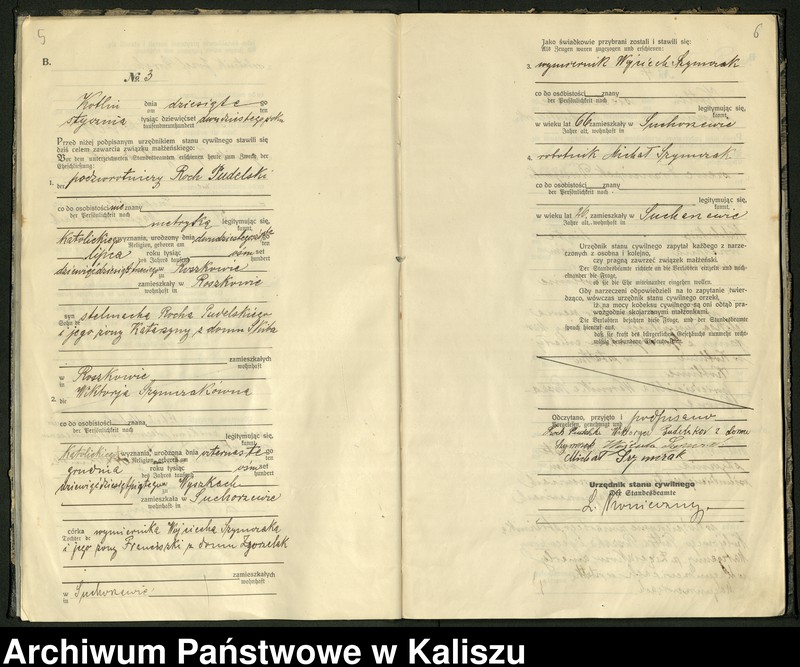 5
B.
№ 3
Kotlin dnia dziesiąte go
am ten
stycznia tysiąc dziewięćset dwudziestego roku
tausendneunhundert
Przed niżej podpisanym urzędnikiem stanu cywilnego stawili się
dziś celem zawarcia związku małżeńskiego:
Vor dem unterzeichneten Standesbeamten erschienen heute zum Zweck der
Eheschließung:
1. podworotniczy Roch Pudelski
der
co do osobistości nie znany
der Persönlichkeit nach
metryką legitymując się,
kannt,
Katolickiego wyznania, urodzony dnia dwudziestego
Religion, geboren am ten
lipca roku tysiąc ośmset
des Jahres tausend hundert
dziewięćdziesiąt w Roszkowie
zu
zamieszkały w Roszkowie
wohnhaft in
syn stelmacha Rocha Pudelskiego
Sohn de
i jego żony Katarzyny z domu Skiba
zamieszkałych
wohnhaft
w Roszkowie
in
2. Wiktorja Szymczakówna
die
co do osobistości znana
der Persönlichkeit nach
legitymując się,
kannt,
Katolickiego wyznania, urodzona dnia go
Religion, geboren am ten
grudnia roku tysiąc ośmset
des Jahres tausend hundert
dziewięćdziesiąt w Wyszkach
zu
zamieszkała w Suchorzewie
wohnhaft in
córka wymiernika Wojciecha Szymczaka
Tochter de
i jego żony Franciszki z domu Zgorzelak
zamieszkałych
wohnhaft
w Suchorzewie
in
6
Jako świadkowie przybrani zostali i stawili się:
Als Zeugen waren zugezogen und erschienen:
3. wymiernik Wojciech Szymczak
co do osobistości znany
der Persönlichkeit nach
legitymując się,
kannt,
w wieku lat 66 zamieszkały w Suchorzewie
Jahre alt, wohnhaft in
4. robotnik Michał Szymczak
co do osobistości znany
der Persönlichkeit nach
legitymując się,
kannt,
w wieku lat zamieszkały w Suchorzewie
Jahre alt, wohnhaft in
Urzędnik stanu cywilnego zapytał każdego z narze-
czonych z osobna i kolejno,
czy pragną zawrzeć związek małżeński.
Der Standesbeamte richtete an die Verlobten einzeln und nach-
einander die Frage,
ob sie die Ehe miteinander eingehen wollen.
Gdy narzeczeni odpowiedzieli na to zapytanie twier-
dząco, wówczas urzędnik stanu cywilnego orzekł,
iż na mocy kodeksu cywilnego są oni odtąd pra-
wowzgodnie skojarzonymi małżonkami.
Die Verlobten bejahten diese Frage, und der Standesbeamte
sprach hierauf aus,
daß sie kraft des bürgerlichen Gesetzbuchs nunmehr recht-
mäßig verbundene Eheleute seien.
Odczytano, przyjęto i podpisano
Vorgelesen, genehmigt und
Roch Pudelski Wiktorya Pudelska z domu
Szymczak
Michał Szymczak
Urzędnik stanu cywilnego
Der Standesbeamte
Archiwum Państwowe w Kaliszu